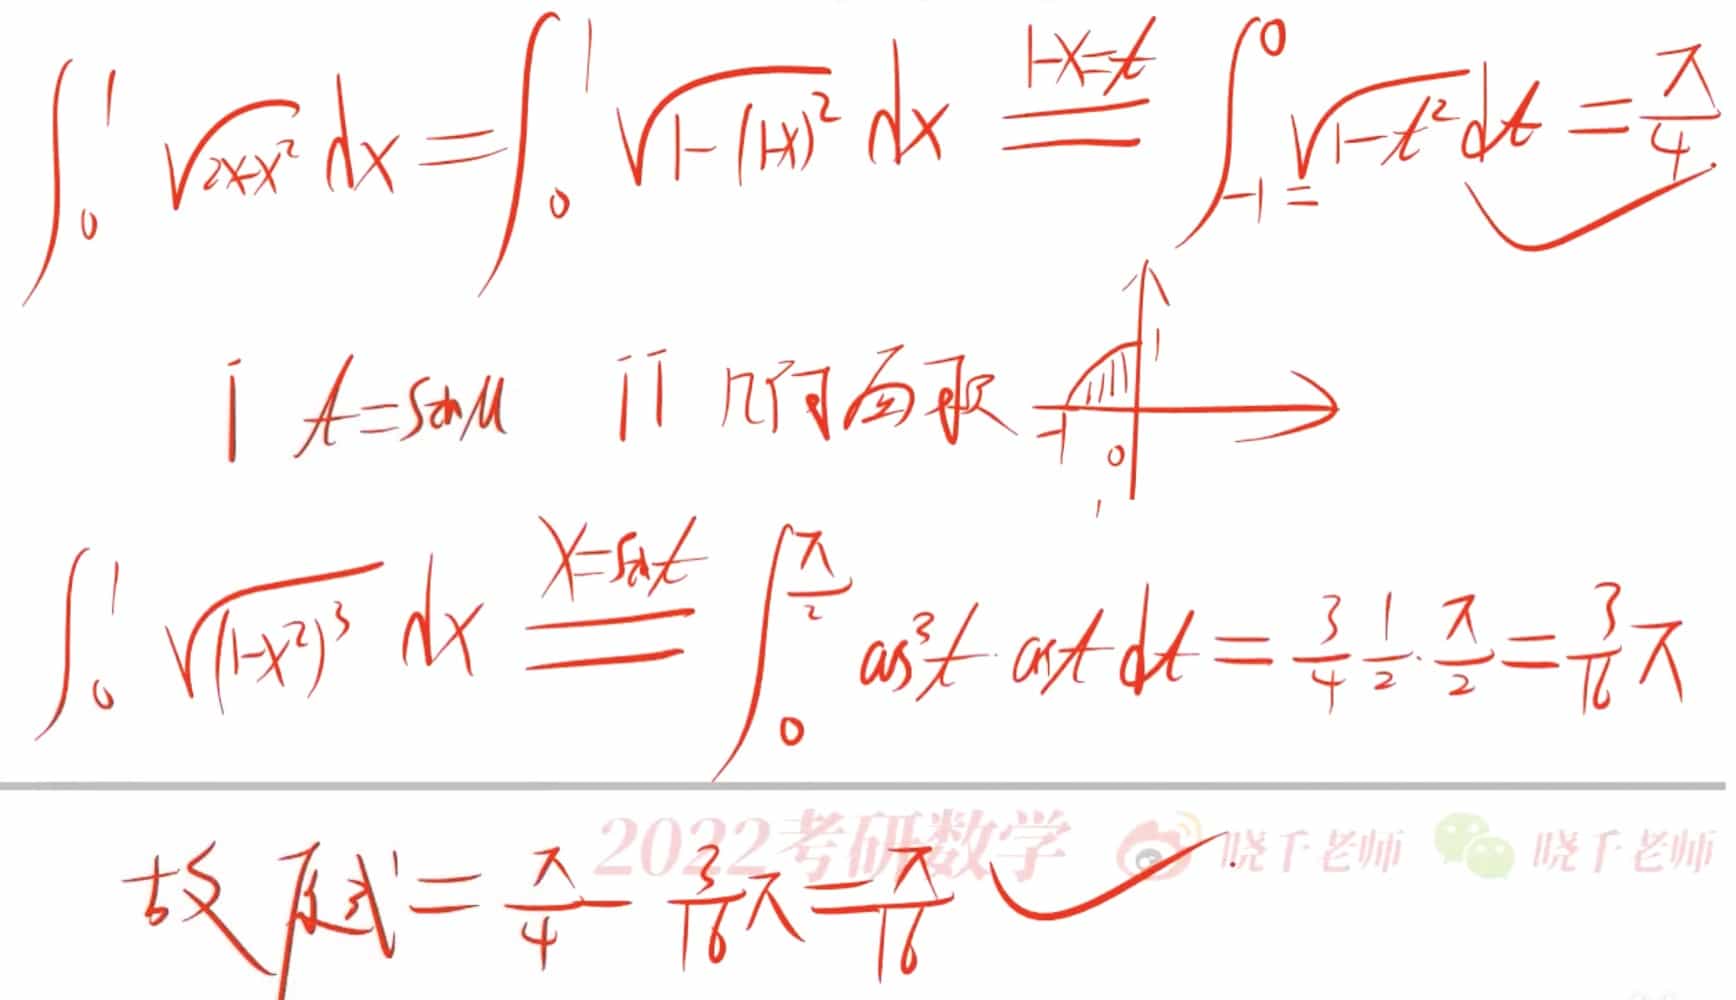 ∫₀¹ √(2x-x²) dx = ∫₀¹ √(1-(1-x)²) dx \overset{1-x=t}{=} ∫₋₁⁰ √(1-t²) dt = π/4
i t=sinu ii 几何面积 -1 0 1
∫₀¹ √((1-x²)³) dx \overset{x=sint}{=} ∫₀^{π/2} cos³t·cost dt = 3/4 1/2·π/2 = 3/16 π
2022考研数学 晓千老师 晓千老师
故 原式 = π/4 - 3/16 π = π/16